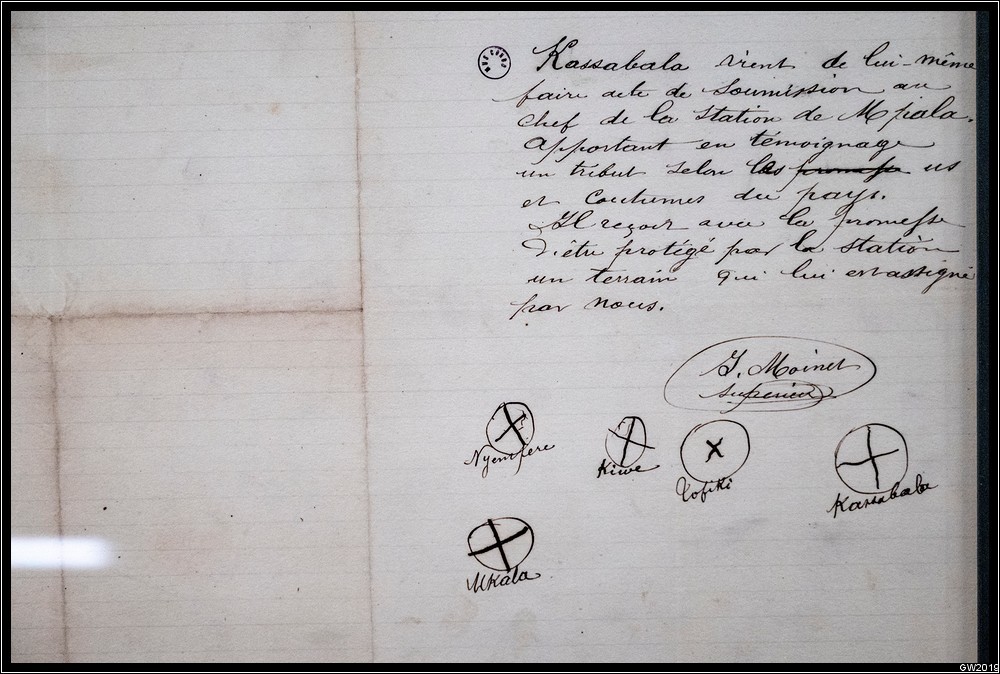 MUS. CONGO
Kassabala vient de lui-même
faire acte de soumission au
chef de la station de Mpala.
Apportant en témoignage
un tribut selon les promesse us
et coutumes du pays.
Il reçoit avec la promesse
d'être protégé par la station
un terrain qui lui est assigné
par nous.
I. Moinet
Supérieur
Kiwe
Tofiki
Kassabala
Mkala
GW2019